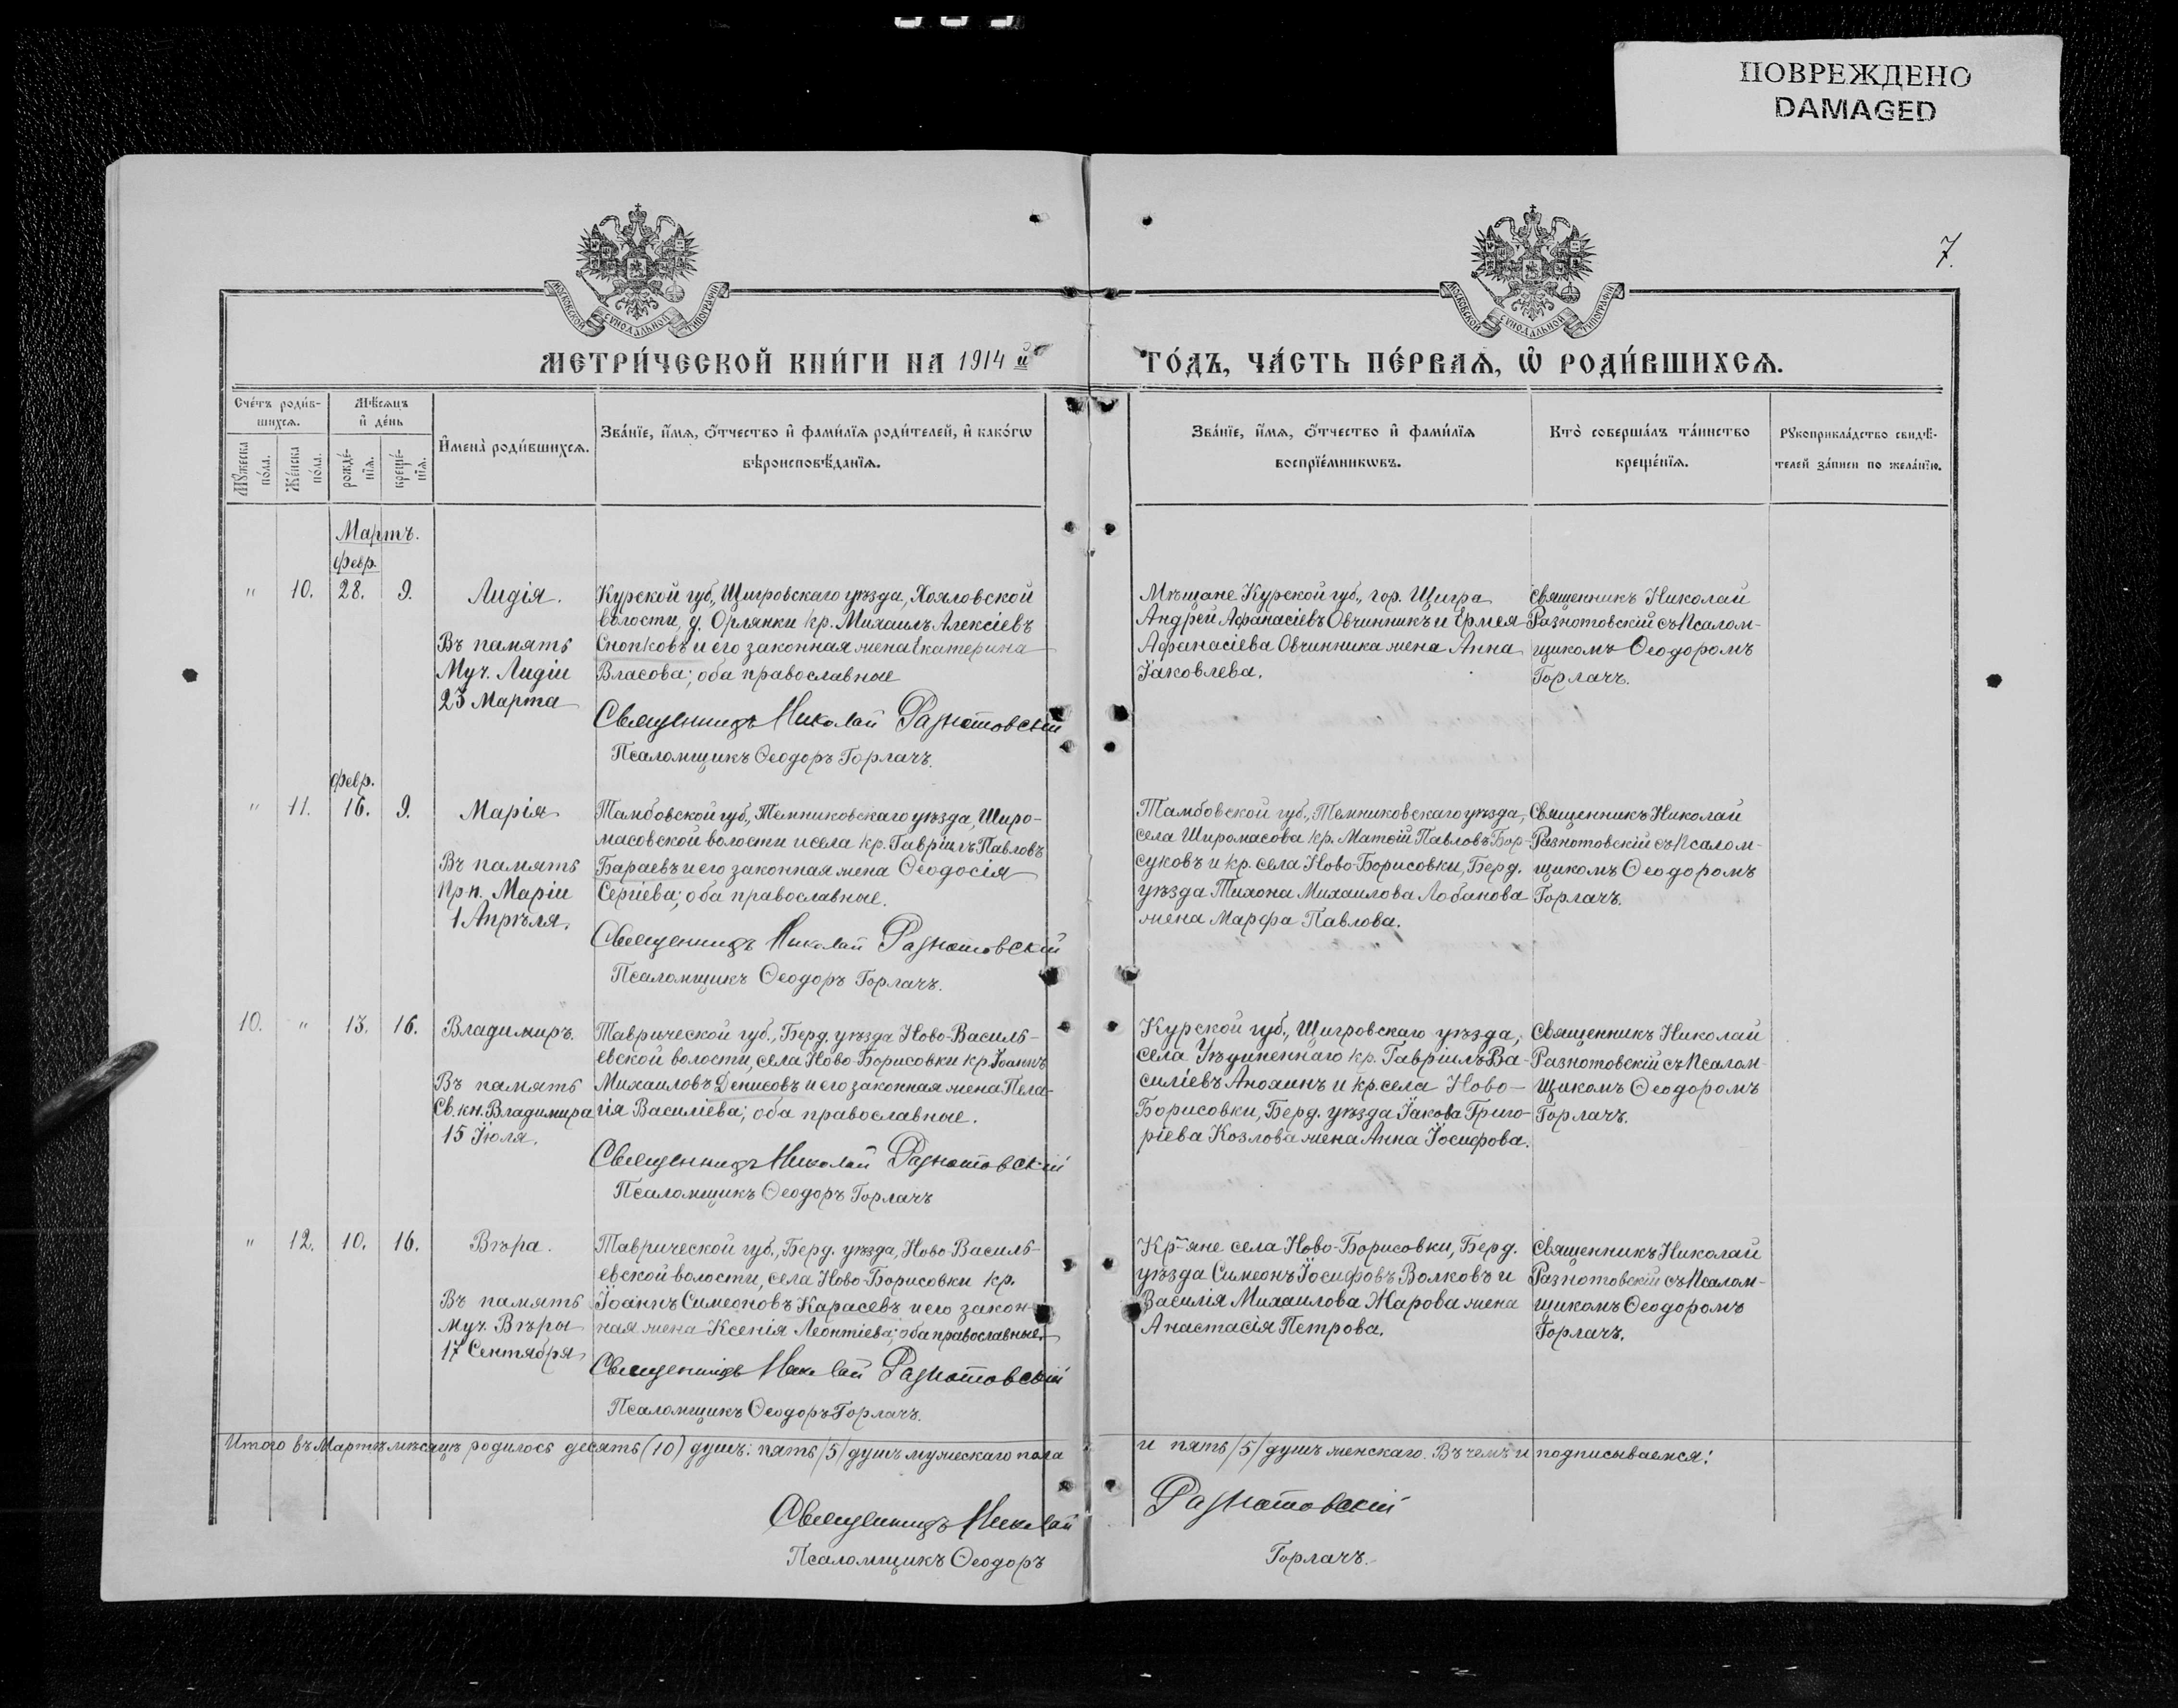 ПОВРЕЖДЕНО
DAMAGED
7.
МОСКОВСКОЙ СѴНОДАЛЬНОЙ ТИПОГРАФІИ
МОСКОВСКОЙ СѴНОДАЛЬНОЙ ТИПОГРАФІИ
МЕТРИ́ЧЕСКОЙ КНИ́ГИ НА 1914 й
ГО́ДЪ, ЧА́СТЬ ПЕ́РВАѦ, Ѡ҆ РОДИ́ВШИХСѦ.
Сче́тъ роди́в-
шихсѧ.
Мꙋ́жеска по́ла.
Же́нска по́ла.
Мѣ́сѧцъ
и҆ де́нь
рожде́-
нїѧ.
креще́-
нїѧ.
И҆мена̀ роди́вшихсѧ.
Зва́нїе, и҆́мѧ, ѻ҆́тчество и҆ фами́лїѧ роди́телей, и҆ како́гѡ
вѣроисповѣ́данїѧ.
Зва́нїе, и҆́мѧ, ѻ҆́тчество и҆ фами́лїѧ
воспрїе́мникѡвъ.
Кто̀ соверша́лъ та́инство
креще́нїѧ.
Рꙋкоприкла́дство свидѣ́-
телей за́писи по жела́нїю.
Мартъ.
Февр.
" 10. 28. 9.
Лидія.
Въ память
Муч. Лидіи
23 Марта
Курской губ., Щигровскаго уѣзда, Хохловской
волости, д. Орлянки кр. Михаилъ Алексіевъ
Снопковъ и его законная жена Екатерина
Власова; оба православные
Священникъ Николай Разнотовскій
Псаломщикъ Ѳеодоръ Горлачъ.
Мѣщане Курской губ., гор. Щигра
Андрей Афанасіевъ Овчинникъ и Ермея
Афанасіева Овчинника жена Анна
Іаковлева.
Священникъ Николай
Разнотовскій съ Псалом-
щикомъ Ѳеодоромъ
Горлачъ.
Февр.
" 11. 16. 9.
Марія
Въ память
Прп. Маріи
1 Апрѣля.
Тамбовской губ., Темниковскаго уѣзда, Широ-
масовской волости и села кр. Гавріилъ Павловъ
Бараевъ и его законная жена Ѳеодосія
Сергіева; оба православные.
Священникъ Николай Разнотовскій
Псаломщикъ Ѳеодоръ Горлачъ.
Тамбовской губ., Темниковскаго уѣзда,
села Широмасова кр. Матѳій Павловъ Бор-
суковъ и кр. села Ново-Борисовки, Берд.
уѣзда Тихона Михаилова Лобанова
жена Марфа Павлова.
Священникъ Николай
Разнотовскій съ Псалом-
щикомъ Ѳеодоромъ
Горлачъ.
10. " 13. 16.
Владимиръ.
Въ память
Св. кн. Владимира
15 Іюля.
Таврической губ., Берд. уѣзда Ново-Василь-
евской волости, села Ново-Борисовки кр. Іоаннъ
Михаиловъ Денисовъ и его законная жена Пела-
гія Василіева; оба православные.
Священникъ Николай Разнотовскій
Псаломщикъ Ѳеодоръ Горлачъ
Курской губ., Щигровскаго уѣзда,
села Уѣдиненнаго кр. Гавріилъ Ва-
силіевъ Анохинъ и кр. села Ново-
Борисовки, Берд. уѣзда Іакова Григо-
ріева Козлова жена Анна Іосифова.
Священникъ Николай
Разнотовскій съ Псалом-
щикомъ Ѳеодоромъ
Горлачъ.
" 12. 10. 16.
Вѣра.
Въ память
Муч. Вѣры
17 Сентября
Таврической губ., Берд. уѣзда, Ново-Василь-
евской волости, села Ново-Борисовки кр.
Іоаннъ Симеоновъ Карасевъ и его закон-
ная жена Ксенія Леонтіева; оба православные.
Священникъ Николай Разнотовскій
Псаломщикъ Ѳеодоръ Горлачъ.
Кр-яне села Ново-Борисовки, Берд.
уѣзда Симеонъ Іосифовъ Волковъ и
Василія Михаилова Жарова жена
Анастасія Петрова.
Священникъ Николай
Разнотовскій съ Псалом-
щикомъ Ѳеодоромъ
Горлачъ.
Итого въ Мартѣ мѣсяцѣ родилось десять (10) душъ: пять /5/ душъ мужескаго пола
и пять /5/ душъ женскаго. Въ чемъ и подписываемся:
Священникъ Николай
Разнотовскій
Псаломщикъ Ѳеодоръ
Горлачъ.